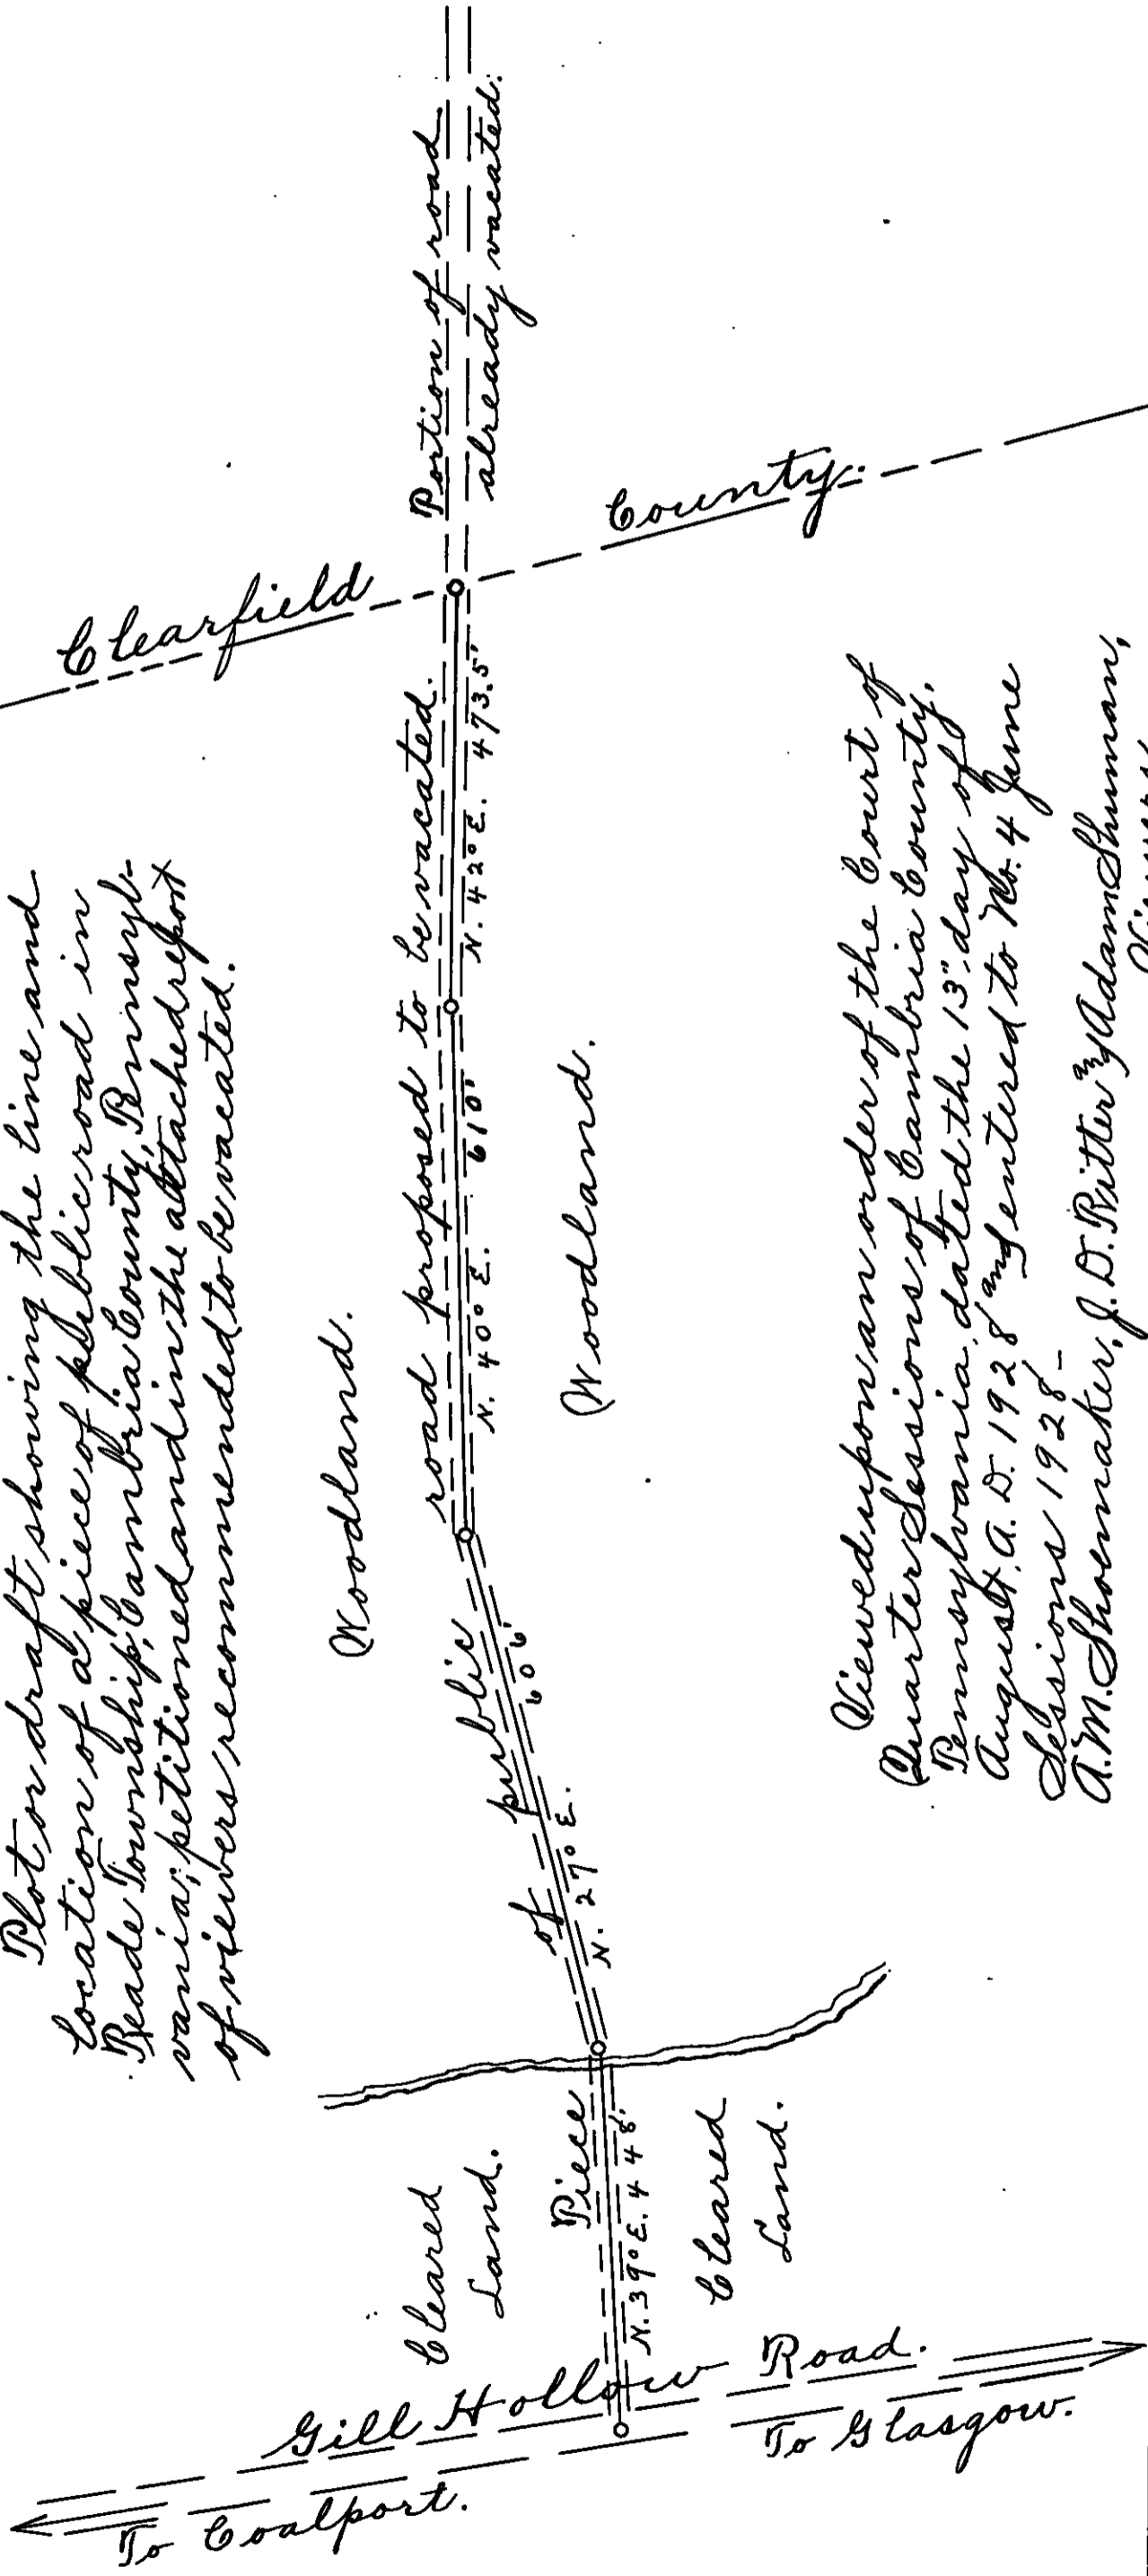 Plot or draft showing the line and
location of a piece of public road in
Reade Township, Cambria County, Pennsyl-
vania; petitioned and in the attached report
of viewers recommended to be vacated.
Clearfield County.
Portion of road
already vacated.
Woodland.
Piece of public road proposed to be vacated.
N. 39° E. 448'
N. 27° E. 606'
N. 40° E. 610'
N. 42° E. 473.5'
Woodland.
Cleared
Land.
Cleared
Land.
Gill Hollow Road.
To Coalport.
To Glasgow.
Viewed upon an order of the Court of
Quarter Sessions of Cambria County,
Pennsylvania, dated the 13" day of
August. A.D. 1928 and entered to No. 4 June
Sessions 1928-
A.M. Shoemaker, J.D. Ritter and Adam Shuman,